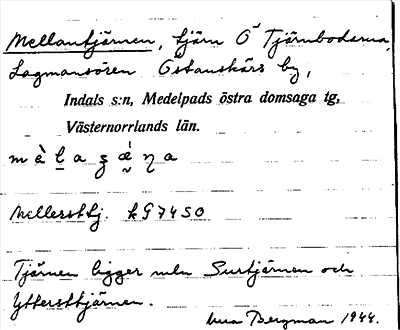 Mellantjärnen, tjärn Ö Tjärnbodarna,
Lagmansören Östanskärs by,
Indals s:n, Medelpads östra domsaga tg,
Västernorrlands län.
Mellersttj. k G 7450
Tjärnen ligger mln Surtjärnen och
Yttersttjärnen.
Bergman 1944.